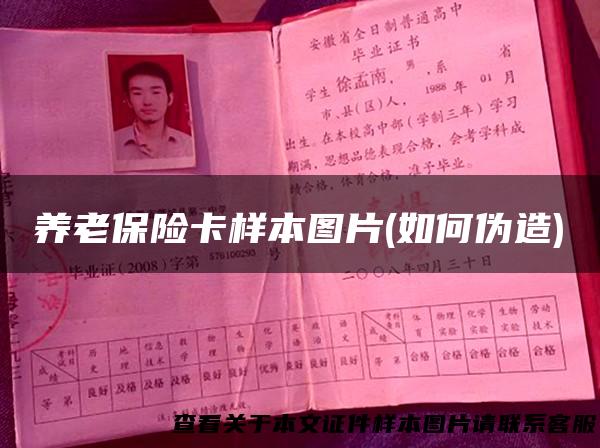 安徽省全日制普通高中
毕业证书
学生 徐孟南, 男, 系 省
市、县(区)人, 1988 年 01 月
出生。在本校高中部(学制三年)学习
期满, 思想品德表现合格, 会考学科成
绩合格, 体育合格, 准予毕业。
养老保险卡样本图片(如何伪造)
毕业证(2008)字第 576100293 号
二〇〇八年四月三十日
考试科目 历史 地理 信息技术 数学 物理 生物 化学 英语 政治 语文
成绩
等第 良好 及格 及格 及格 良好 良好 优秀 良好 良好 良好
考查科目 体育 物理实验 化学实验 生物实验 劳动技术
成绩
等第 合格 合格 合格 合格 合格
注:本成绩涂改无效。
查看关于本文证件样本图片请联系客服